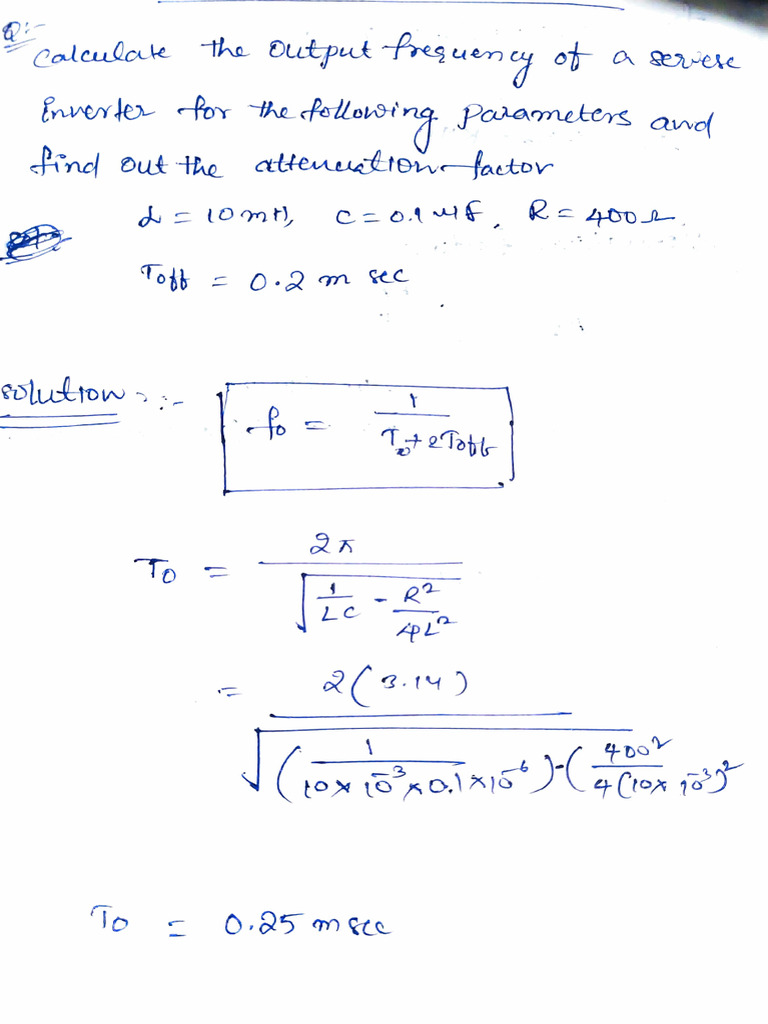 Q:-
Calculate the output frequency of a series
Inverter for the following parameters and
find out the attenuation factor
L = 10 mH, C = 0.1 μf, R = 400 Ω
Toff = 0.2 m sec
solution :-
fo = 1 / (To + 2Toff)
To = 2π / √(1/LC - R²/4L²)
= 2(3.14) / √((1/(10 x 10⁻³ x 0.1 x 10⁻⁶)) - (400²/4(10 x 10⁻³)²))
To = 0.25 m sec